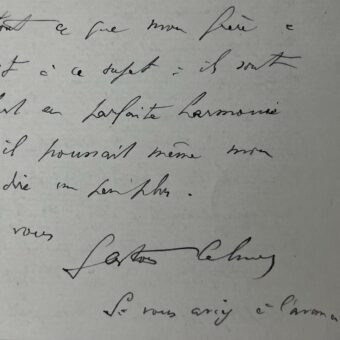 tout ce que mon frère a
it à ce sujet : ils sont
en parfaite harmonie
il pourrait même mon
dire un peu plus.
vous
Gaston Calmes
Si vous à l'avance